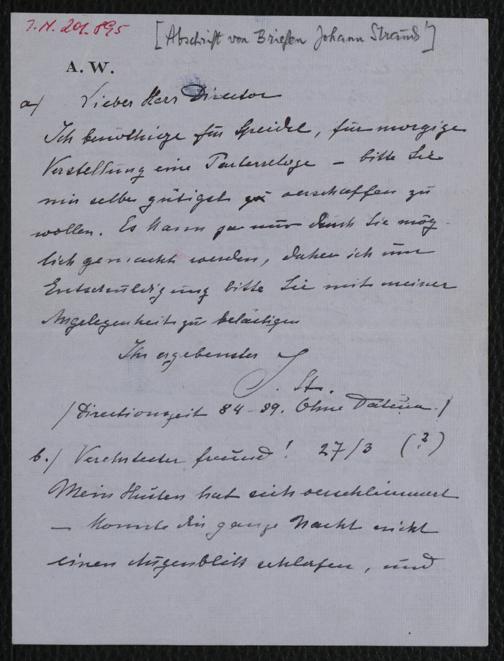 I.N. 201.895
[Abschrift von Briefen Johann Strauß']
A. W.
a/ Lieber Herr Director
Ich benöthige für Speidel, für morgige
Vorstellung eine Parterreloge – bitte Sie
mir selbe gütigst zu verschaffen zu
wollen. Es kann ja nur durch Sie mög-
lich gemacht werden, daher ich um
Entschuldigung bitte Sie mit meiner
Angelegenheit zu belästigen
Ihr ergebenster
J. St.
/Directionszeit 84–89. Ohne Datum./
b./ Verehrtester Freund! 27/3 (?)
Mein Husten hat sich verschlimmert
– konnte die ganze Nacht nicht
einen Augenblick schlafen, und